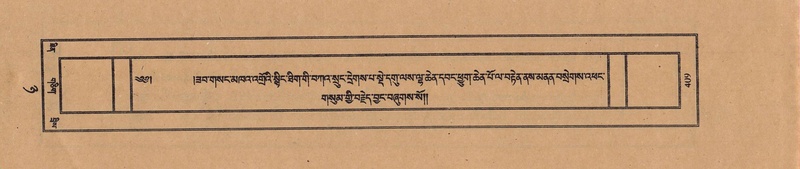 ༄༅།། །ཟབ་གསང་མཁའ་འགྲོའི་སྙིང་ཐིག་གི་བཀའ་སྲུང་དྲེགས་པ་སྡེ་དགུ་ལས་ལྷ་ཆེན་དབང་ཕྱུག་ཆེན་པོ་ལ་བརྟེན་ནས་མནན་བསྲེགས་འཕང་
གསུམ་གྱི་བརྗེད་བྱང་བཞུགས་སོ།།
409